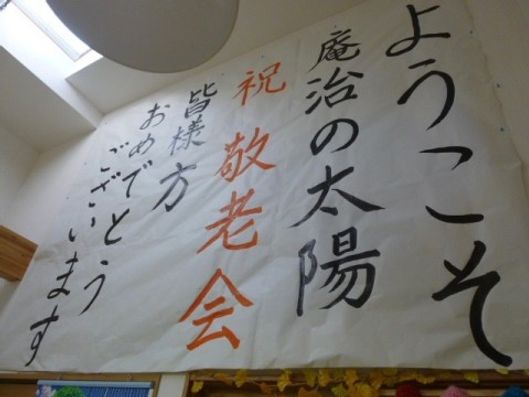 ようこそ
庵治の太陽
祝 敬老会
皆様方
おめでとう
ございます